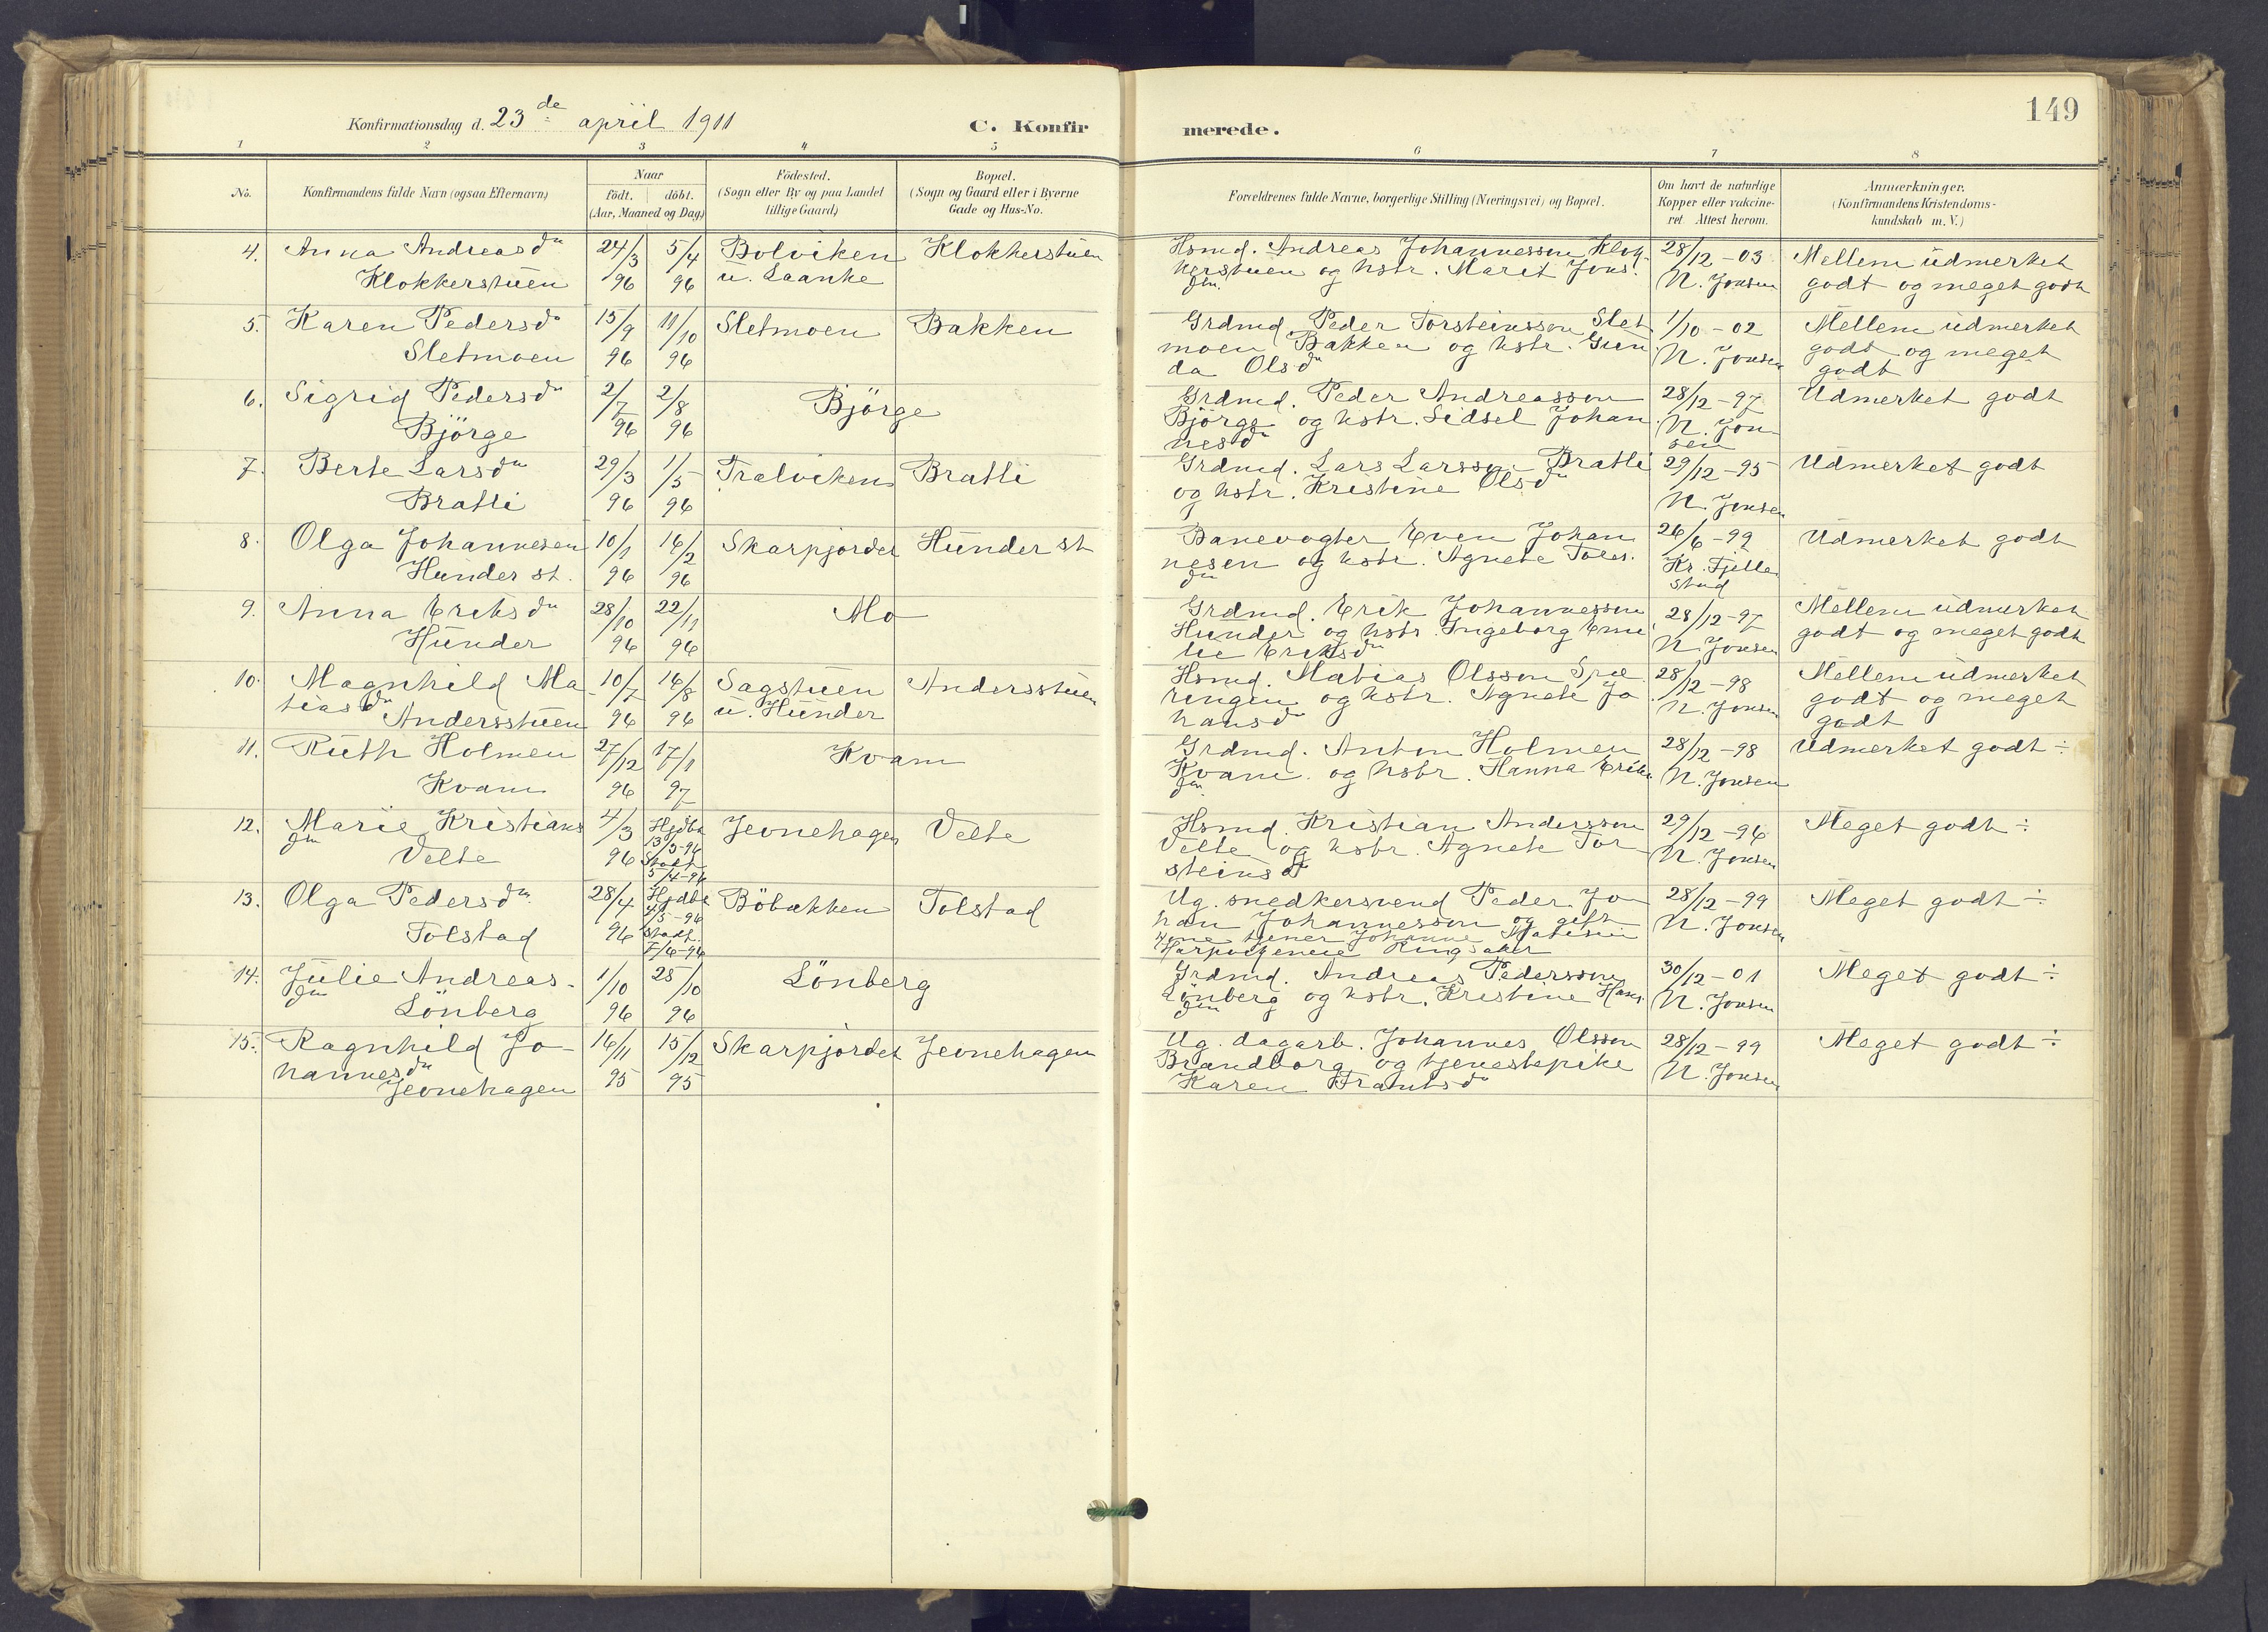 149
Konfirmationsdag d. 23de april 1911
C. Konfirmerede.
1 2 3 4 5 6 7 8
No.
Konfirmandens fulde Navn (ogsaa Efternavn)
Naar
født. døbt.
(Aar, Maaned og Dag)
Fødested.
(Sogn eller By og paa Landet
tillige Gaard)
Bopæl.
(Sogn og Gaard eller i Byerne
Gade og Hus-No.
Forældrenes fulde Navne, borgerlige Stilling (Næringsvei) og Bopæl.
Om havt de naturlige
Kopper eller vakcine-
ret Attest herom.
Anmærkninger.
(Konfirmandens Kristendoms-
kundskab m. V.)
4. Anna Andreasdn 24/3 5/4 Bolviken Klokkerstuen Hsmd. Andreas Johannesson Klok- 28/12-03 Mellem udmerket
Klokkerstuen 96 96 u. Laanke kerstuen og hstr. Marit Jons. N. Jonsen godt og meget godt
dn.
5. Karen Pedersdn 15/9 11/10 Sletmoen Bakken Grdmd. Peder Torsteinsson Slet 1/10-02 Mellem udmerket
Sletmoen 96 96 moen Bakken og hstr. Gun N. Jonsen godt og meget
da Olsdn godt
6. Sigrid Pedersdn 2/7 2/8 Bjørge Grdmd. Peder Andreasson 28/12-97 Udmerket godt
Bjørge 96 96 Bjørge og hstr. Sidsel Johan N. Jon-
nesdn sen
7. Berte Larsdn 29/3 1/5 Tralviken Bratli Grdmd. Lars Larsson Bratli 29/12-95 Udmerket godt
Bratli 96 96 og hstr. Kristine Olsdn N. Jonsen
8. Olga Johannesen 10/1 16/2 Skarpjordet Hunder st Banevogter Even Johan 26/6-99 Udmerket godt
Hunder st. 96 96 nesen og hstr. Agnete Toles. Kr. Fjelle
dn stad
9. Anna Eriksdn 28/10 22/11 Mo Grdmd. Erik Johannesson 28/12-97 Mellem udmerket
Hunder 96 96 Hunder og hstr. Ingeborg Eme N. Jonsen godt og meget godt
lie Eriksdn
10. Magnhild Ma- 10/7 16/8 Sagstuen Andersstuen Hsmd. Matias Olsson Spæ 28/12-98 Mellem udmerket
tiasdn 96 96 u. Hunder ringen og hstr. Agnete Jo N. Jonsen godt og meget
Andersstuen hansdn godt
11. Ruth Holmen 27/12 17/1 Kvam Grdmd. Anton Holmen 28/12-98 Udmerket godt ÷
Kvam 96 97 Kvam og hstr. Hanna Eriks N. Jonsen
dn.
12. Marie Kristians 4/3 Hjdbt Jevnehagen Velte Hsmd. Kristian Andersson 29/12-96 Meget godt ÷
dn Velte 96 13/3-96 Velte og hstr. Agnete Tor N. Jonsen
Stadf. 5/4-96 steinsdn
13. Olga Pedersdn 28/4 Hjdbt Böbakken Tolstad Ug. snedkersvend Peder Jo- 28/12-99 Meget godt ÷
Tolstad 96 4/5-96 han Johannesson og gift N. Jonsen
Stadf. 7/6-96 tjener Johanne
Ringsaker
14. Julie Andreas- 1/10 25/10 Lönberg Grdmd. Andreas Pedersson 30/12-01 Meget godt ÷
dn Lönberg 96 96 Lönberg og hstr. Kristine Hans. N. Jonsen
dn
15. Ragnhild Jo- 16/11 15/12 Skarpjordet Jevnehagen Ug. dagarb. Johannes Olsson 28/12-99 Meget godt ÷
hannesdn 95 95 Brandborg og tjenestepike N. Jonsen
Jevnehagen Karen Frantsdn